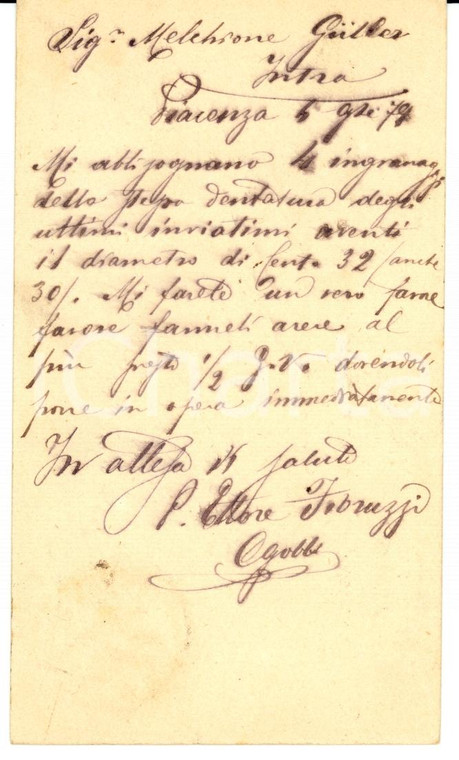 Sig.r Melchione Güller
Intra
Piacenza 5 9bre 79
Mi abbisognano 4 ingranaggi
della stessa dentatura degli
ultimi inviatimi aventi
il diametro di Cent. 32 /anche
30/. Mi farete un vero
favore farmeli avere al
più presto 1/2 G.V. dovendoli
porre in opera immediatamente
In attesa Vi saluto
P. Ettore